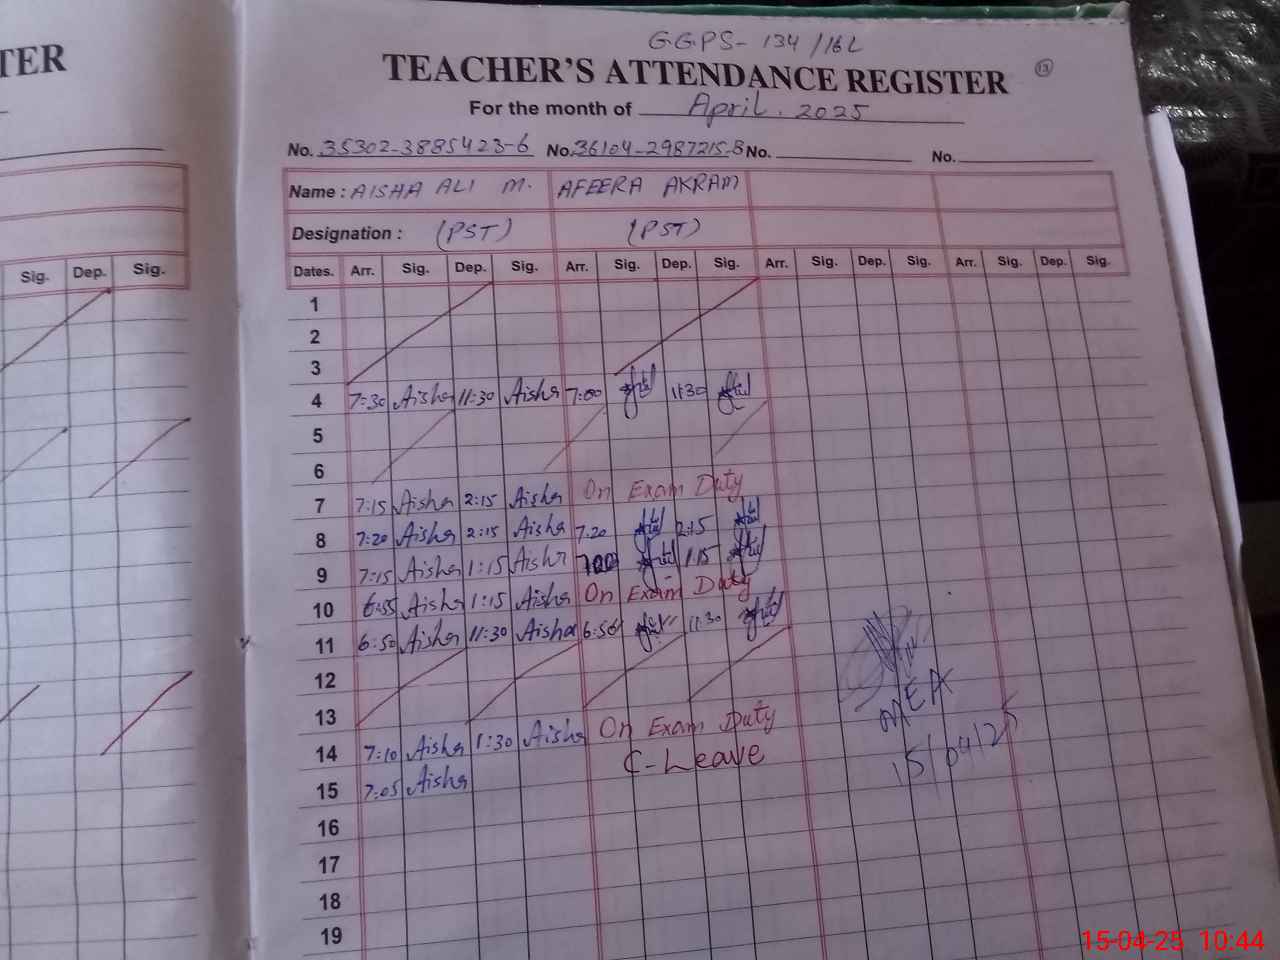 G.G.P.S- 134/16L
TER
TEACHER'S ATTENDANCE REGISTER 13
For the month of April. 2025
No. 35302-3885423-6 No. 36104-2987215-8 No. No.
Name : AISHA ALI M. AFEERA AKRAM
Designation : (PST) (PST)
Sig. Dep. Sig.
Dates. Arr. Sig. Dep. Sig. Arr. Sig. Dep. Sig. Arr. Sig. Dep. Sig. Arr. Sig. Dep. Sig.
1
2
3
4 7:30 Aisha 11:30 Aisha 7:00 11:30
5
6
7 7:15 Aisha 2:15 Aisha On Exam Duty
8 7:20 Aisha 2:15 Aisha 7.20 2:15
9 7:15 Aisha 1:15 Aisha 700 1:15
10 6:55 Aisha 1:15 Aisha On Exam Duty
11 6:50 Aisha 11:30 Aisha 6:50 11:30
12
13
14 7:10 Aisha 1:30 Aisha On Exam Duty
15 7:05 Aisha C-Leave
MEA
15/04/25
16
17
18
19
15-04-25 10:44